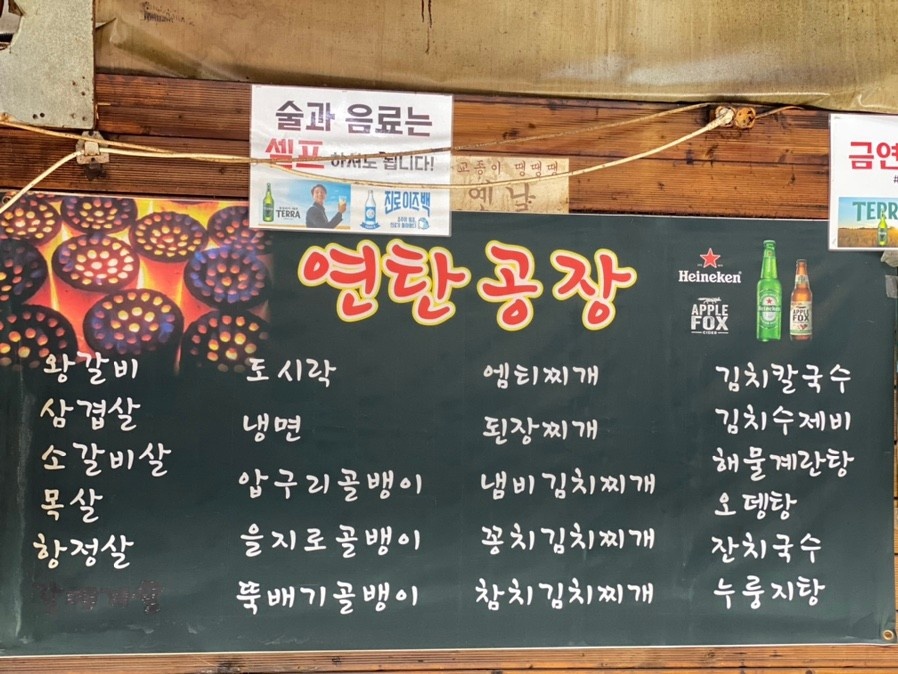 술과 음료는
셀프 하셔도 됩니다!
TERRA
진로이즈백
고등이 땡땡땡
옛날
금연
TERR
연탄공장
Heineken
APPLE
FOX
CIDER
왕갈비
삼겹살
소갈비살
목살
항정살
도시락
냉면
압구리골뱅이
을지로골뱅이
뚝배기골뱅이
엠티찌개
된장찌개
냄비김치찌개
꽁치김치찌개
참치김치찌개
김치칼국수
김치수제비
해물계란탕
오뎅탕
잔치국수
누룽지탕